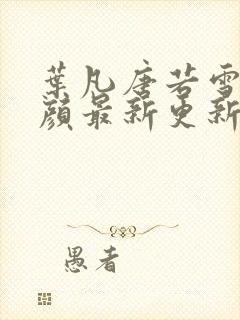 葉凡唐若雪
顏最新更新
愚者